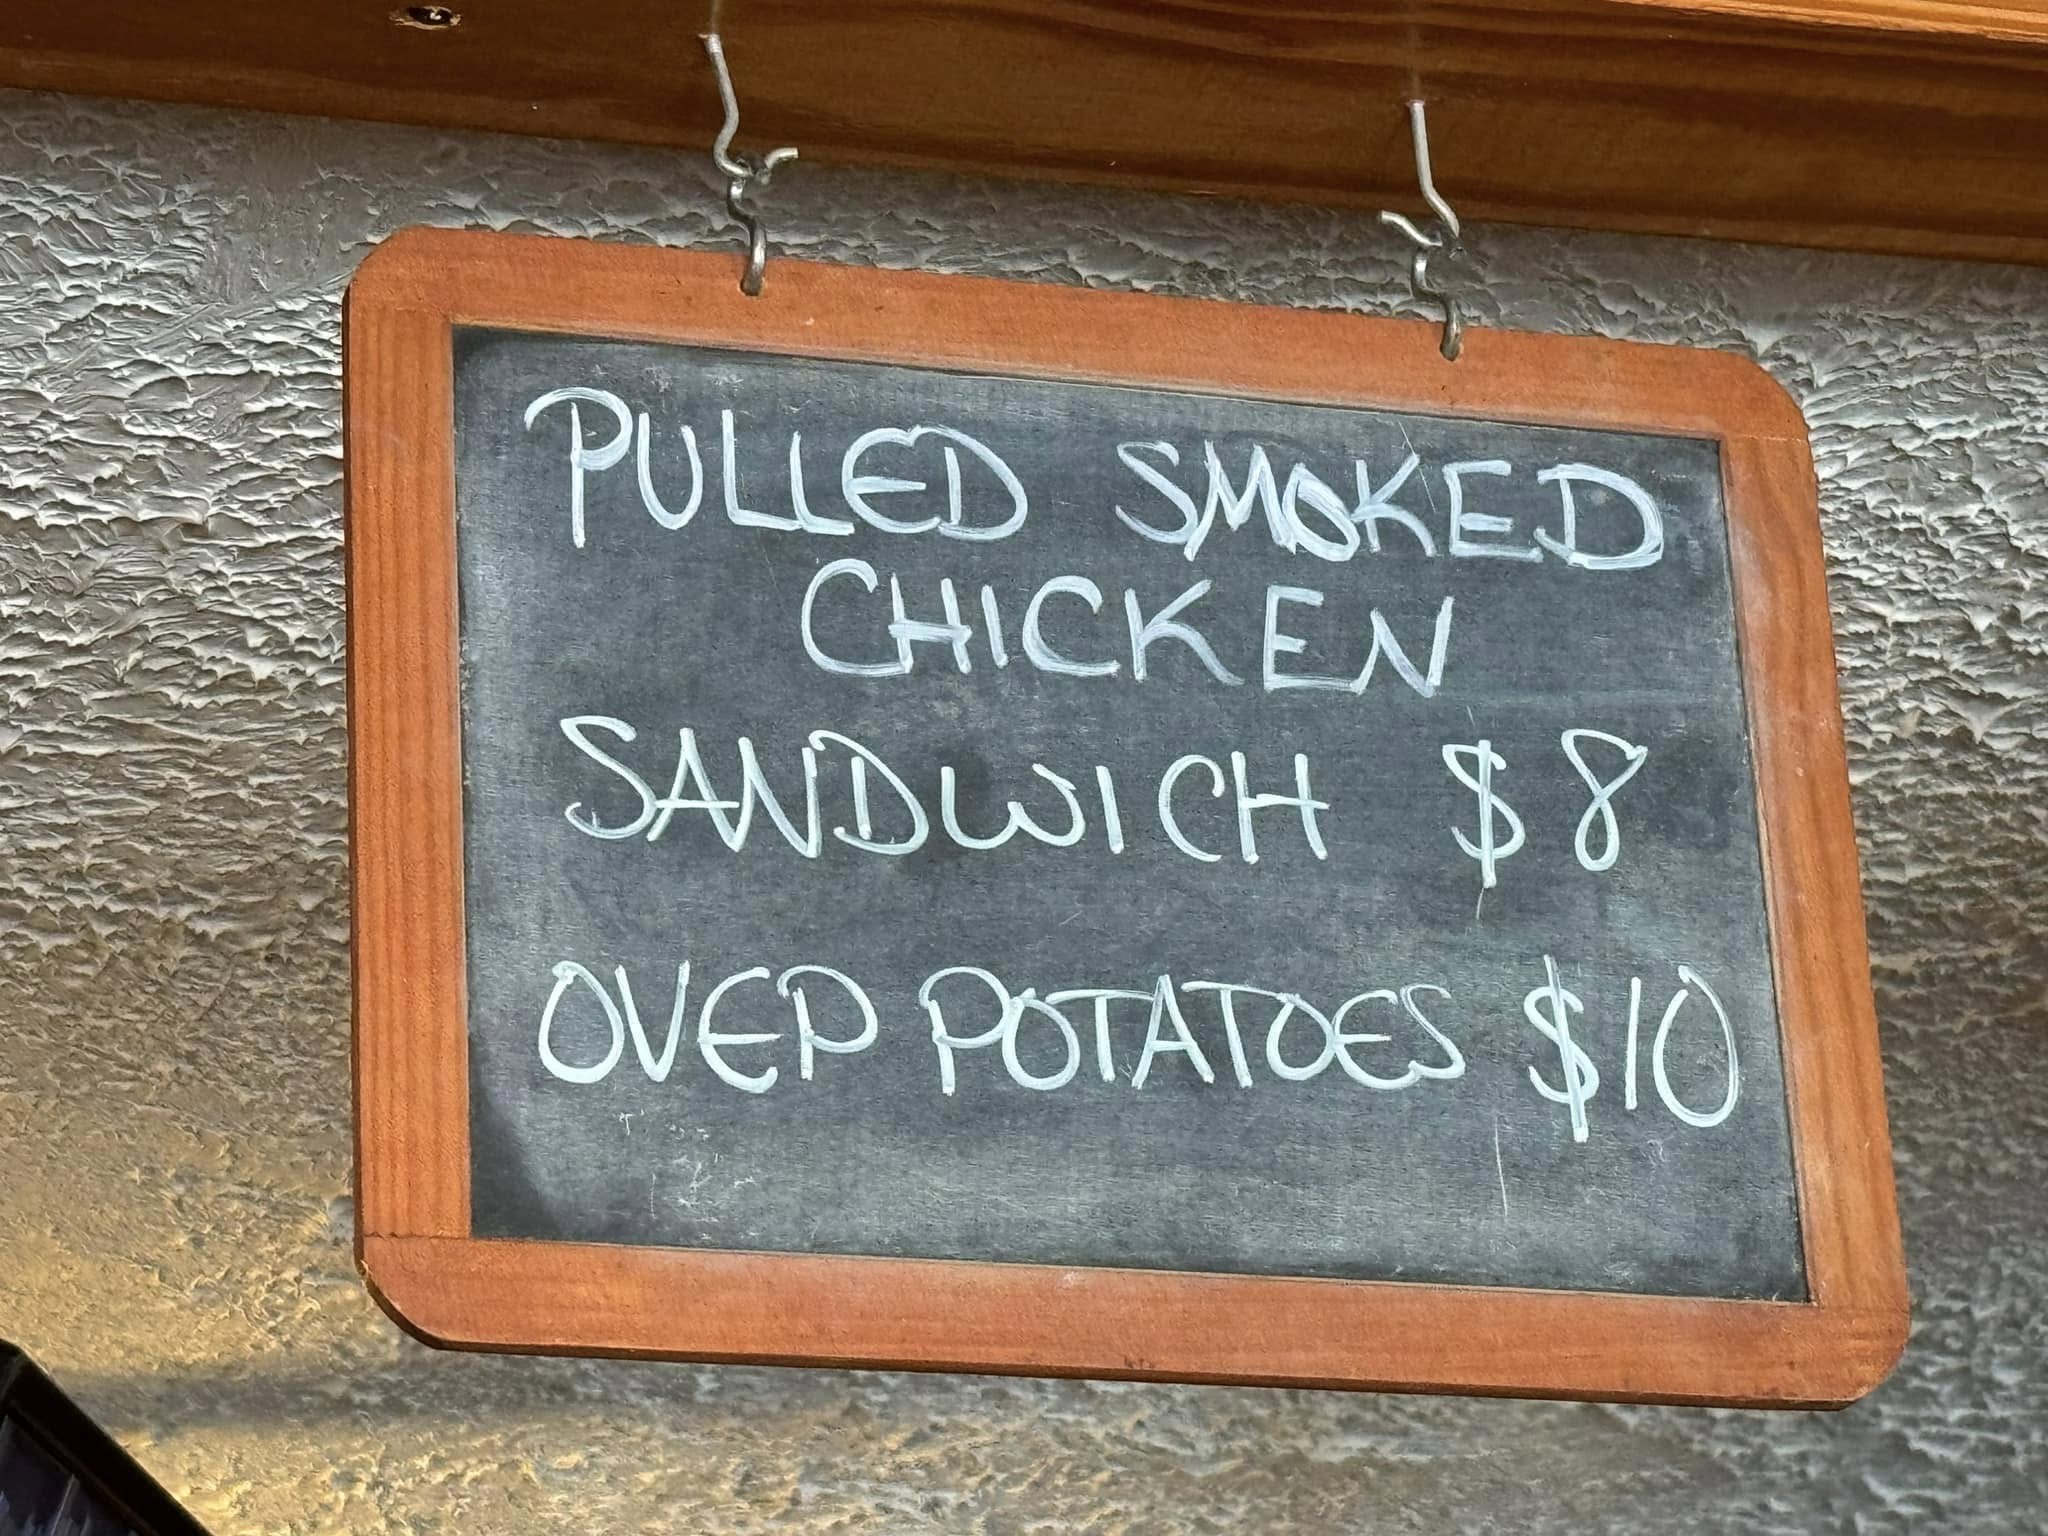 PULLED SMOKED
CHICKEN
SANDWICH $8
OVER POTATOES $10